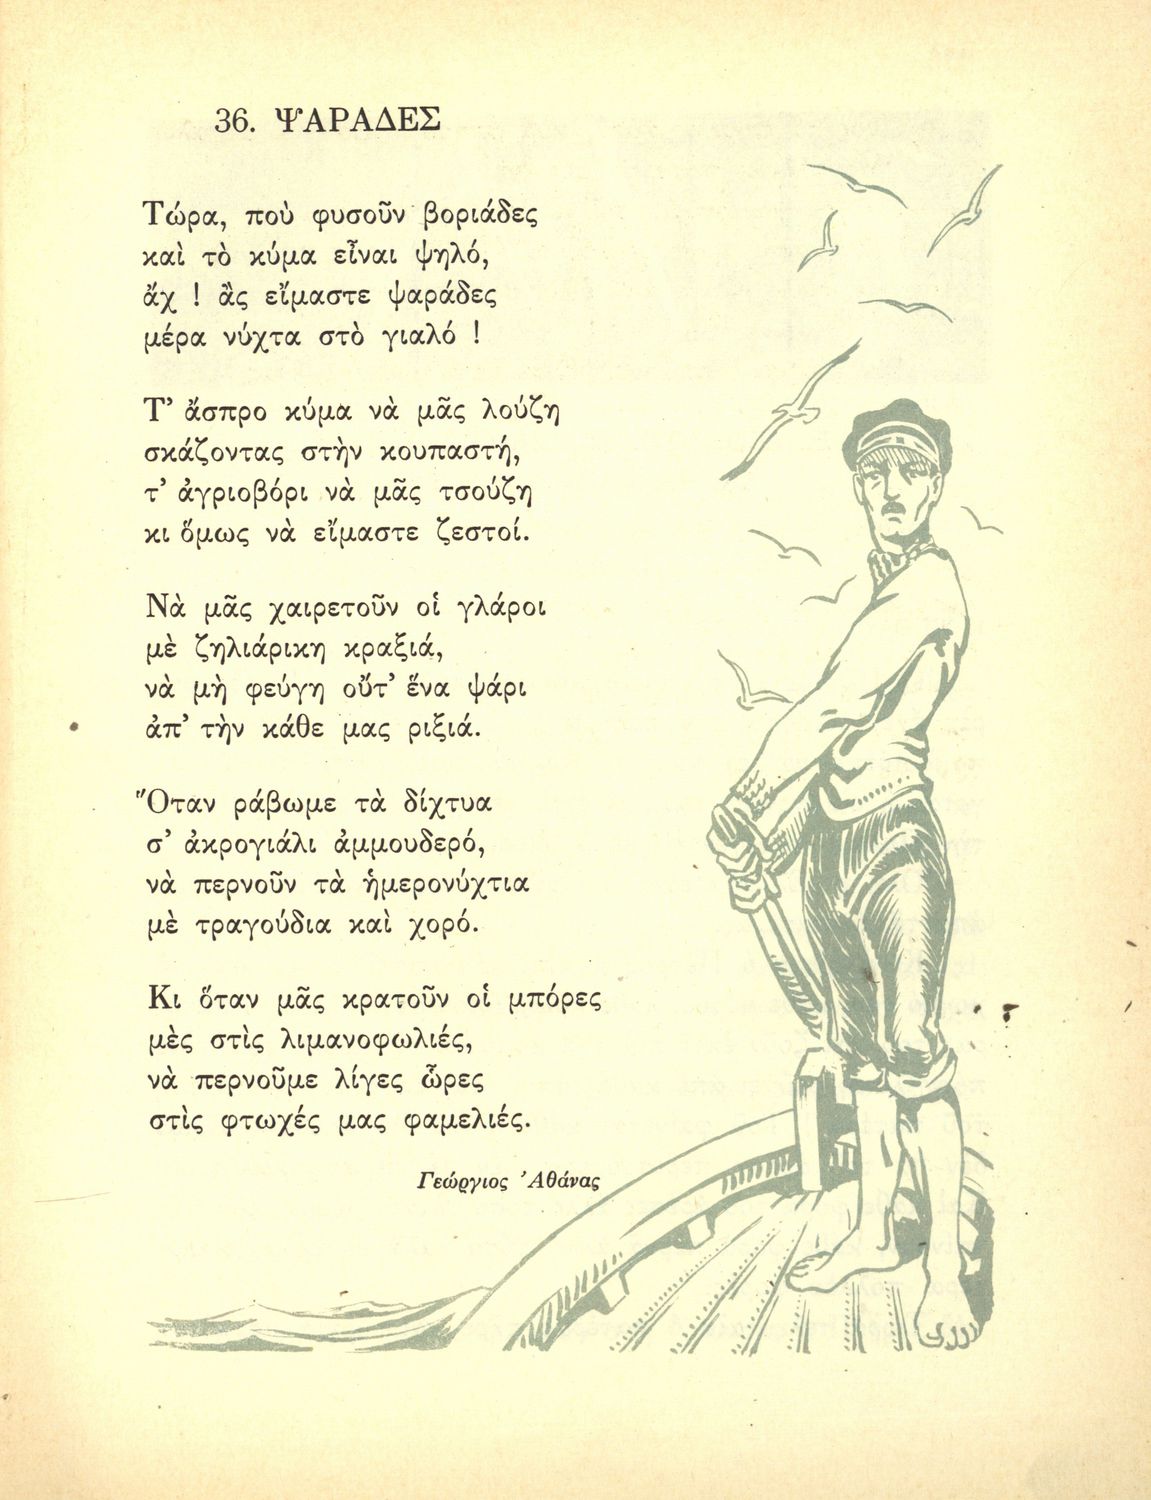 36. ΨΑΡΑΔΕΣ
Τώρα, ποὺ φυσοῦν βοριάδες
καὶ τὸ κύμα εἶναι ψηλό,
ἄχ ! ἂς εἴμαστε ψαράδες
μέρα νύχτα στὸ γιαλό !
Τ’ ἄσπρο κύμα νὰ μᾶς λούζη
σκάζοντας στὴν κουπαστή,
τ’ ἀγριοβόρι νὰ μᾶς τσούζη
κι ὅμως νὰ εἴμαστε ζεστοί.
Νὰ μᾶς χαιρετοῦν οἱ γλάροι
μὲ ζηλιάρικη κραξιά,
νὰ μὴ φεύγη οὔτ’ ἕνα ψάρι
ἀπ’ τὴν κάθε μας ριξιά.
Ὅταν ράβωμε τὰ δίχτυα
σ’ ἀκρογιάλι ἀμμουδερό,
νὰ περνοῦν τὰ ἡμερονύχτια
μὲ τραγούδια καὶ χορό.
Κι ὅταν μᾶς κρατοῦν οἱ μπόρες
μὲς στὶς λιμανοφωλιές,
νὰ περνοῦμε λίγες ὧρες
στὶς φτωχές μας φαμελιές.
Γεώργιος Ἀθάνας